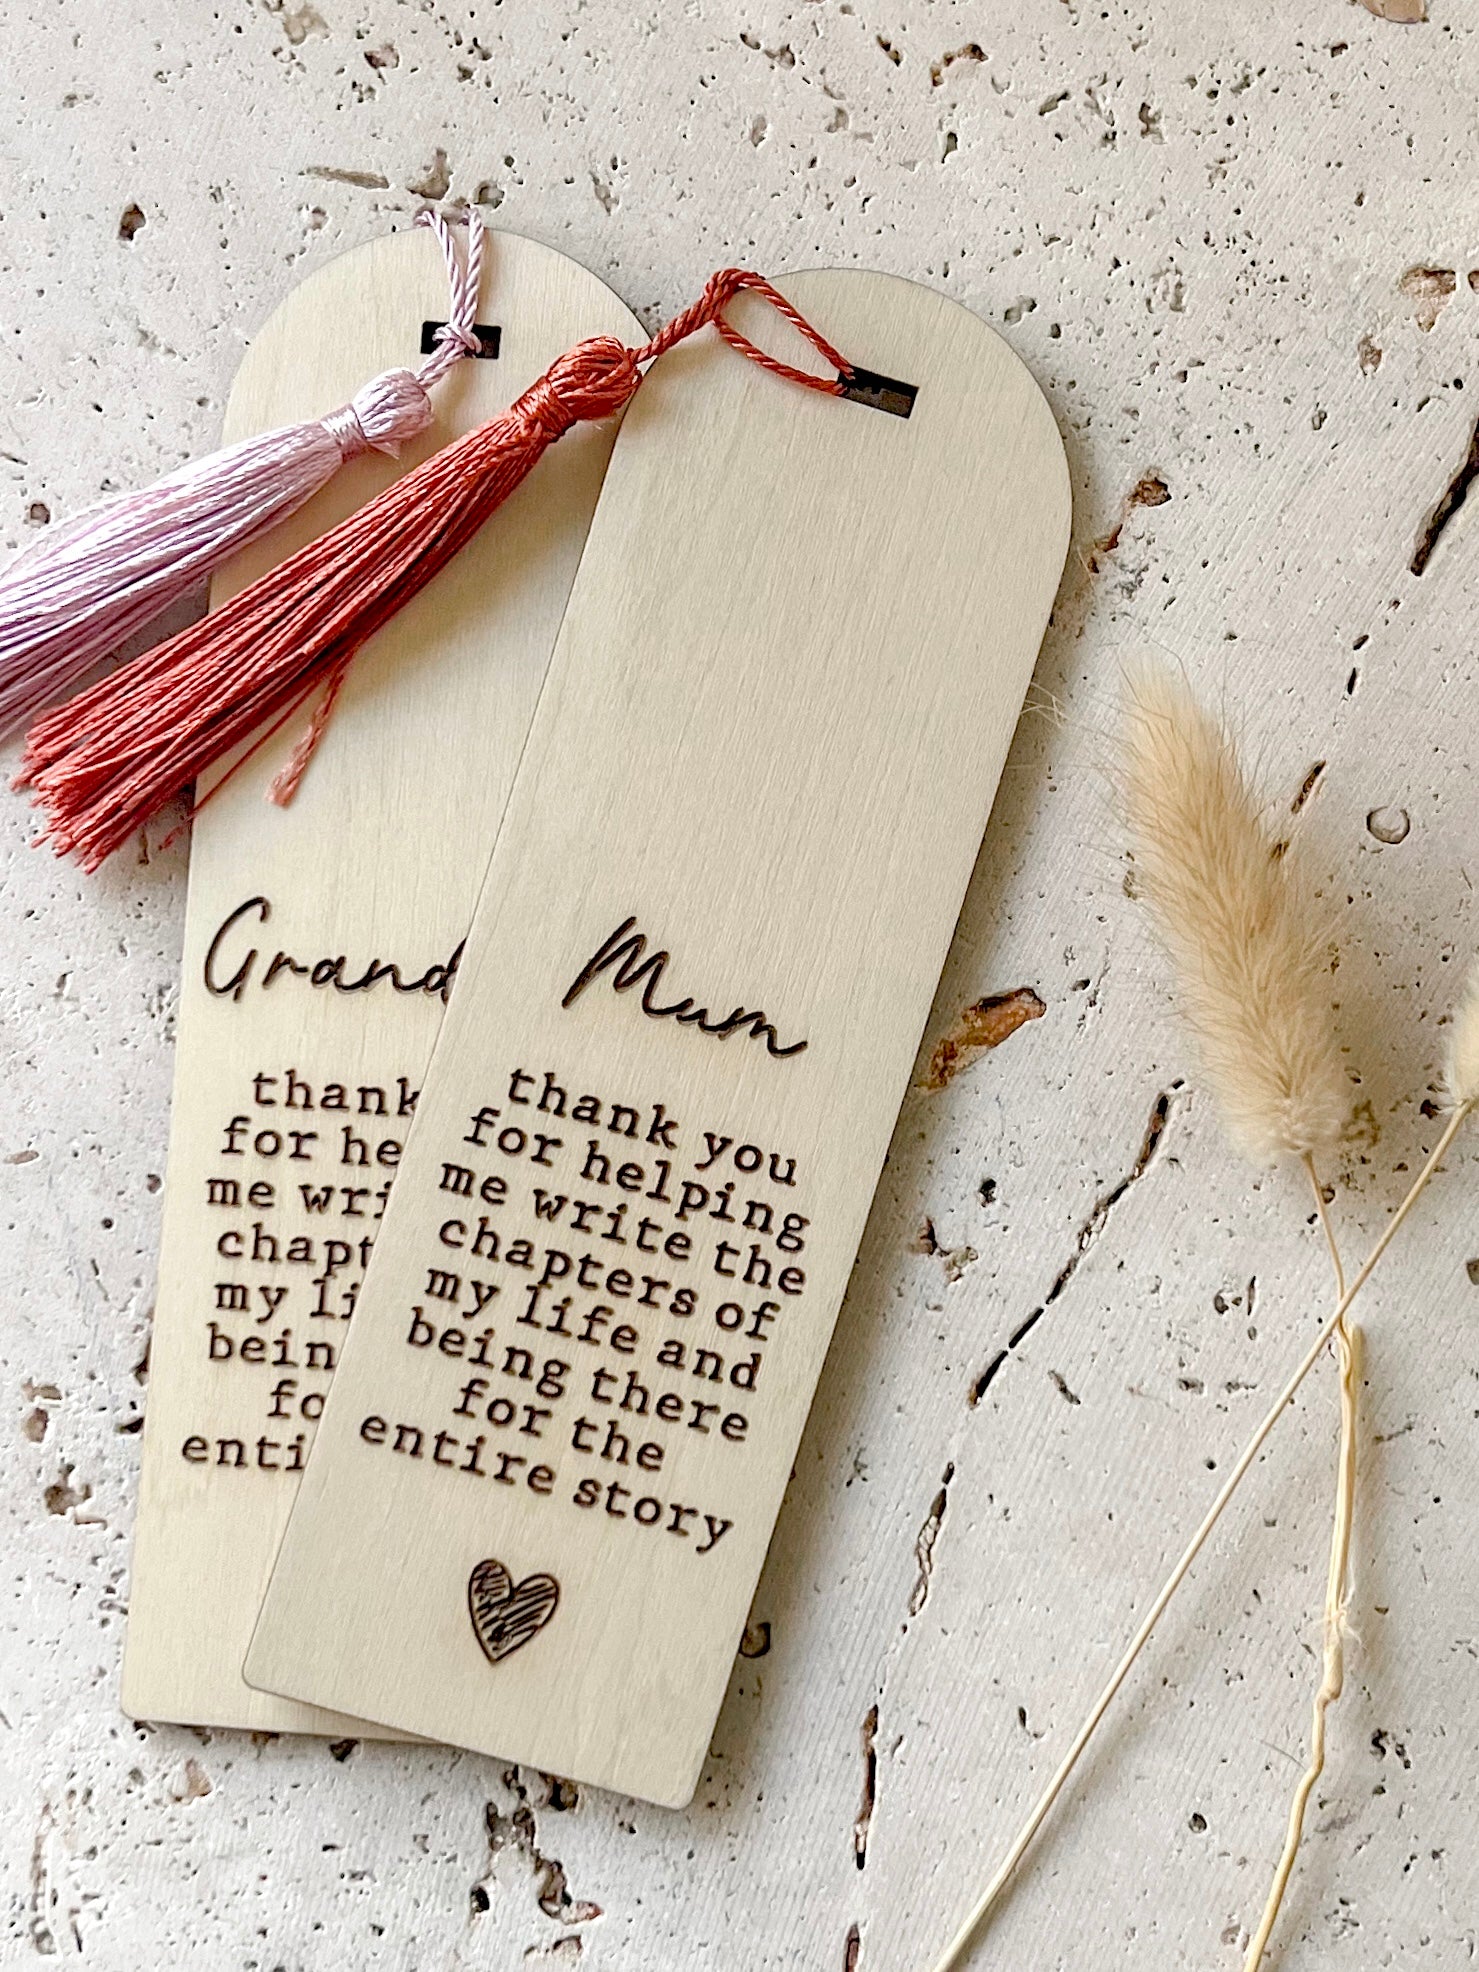 Grand
thank
for he
me wri
chapt
my li
bein
fo
enti
Mum
thank you
for helping
me write the
chapters of
my life and
being there
for the
entire story